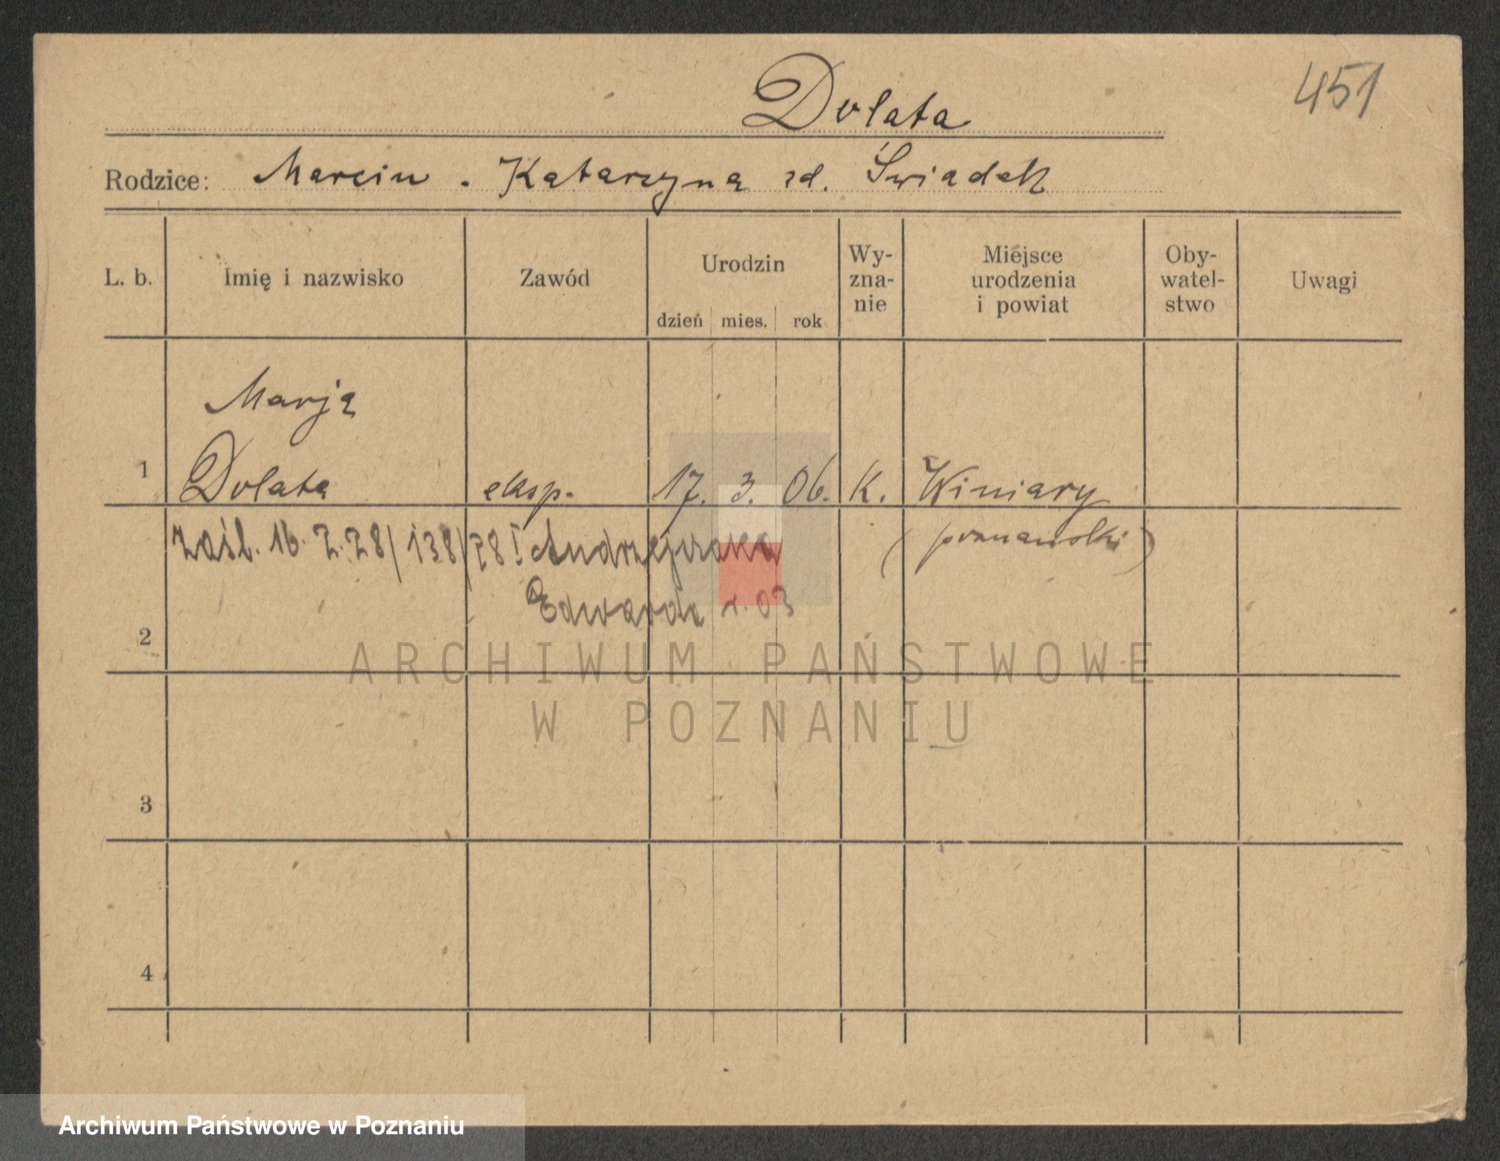 451
Dolata
Rodzice: Marcin . Katarzyna zd. Świadek
L. b. Imię i nazwisko Zawód Urodzin dzień mies. rok Wy-zna-nie Miejsce urodzenia i powiat Oby-watel-stwo Uwagi
Marja
1 Dolata eksp. 17. 3. 06. K. Winiary
zaśl. 16. 2. 28/138/28! Andrzejczaka (poznański)
Edwarda 1. 03
2
3
4
ARCHIWUM PAŃSTWOWE
W POZNANIU
Archiwum Państwowe w Poznaniu